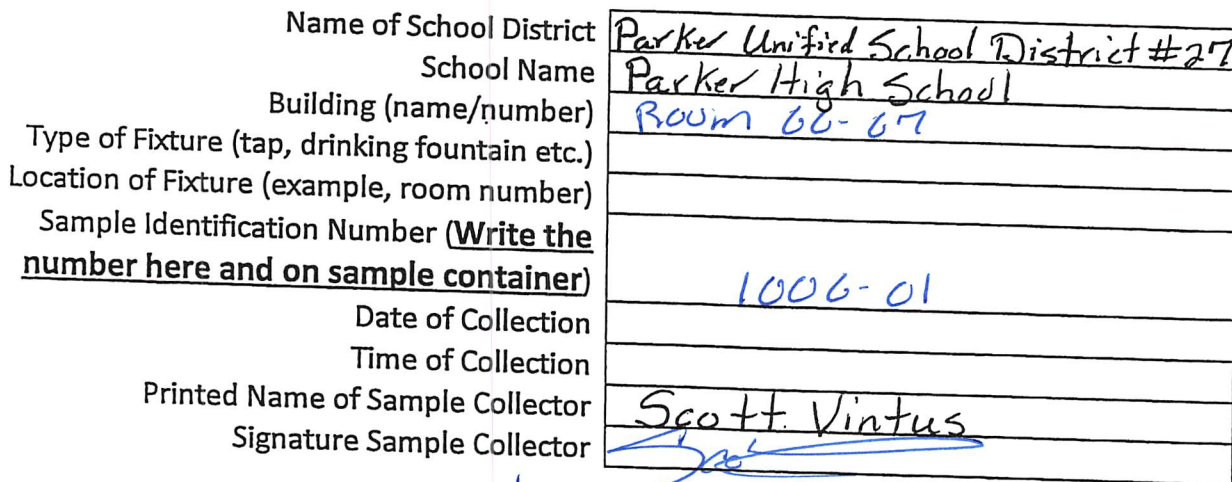 Name of School District Parker Unified School District #27
School Name Parker High School
Building (name/number) Room 66-67
Type of Fixture (tap, drinking fountain etc.)
Location of Fixture (example, room number)
Sample Identification Number (Write the
number here and on sample container) 1006-01
Date of Collection
Time of Collection
Printed Name of Sample Collector Scott Vintus
Signature Sample Collector